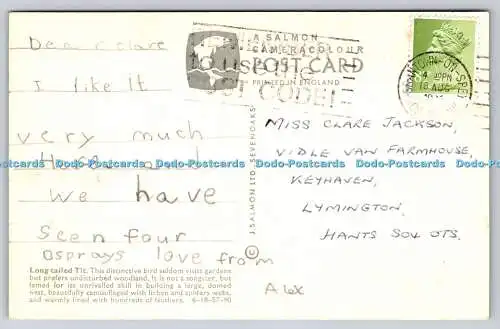 Dear clare
I like It
very much
we have
seen four
osprays love from
Alex
Long tailed Tit. This distinctive bird seldom visits gardens
but prefers undisturbed woodland. It is not a songster, but
famed for its unrivalled skill in building a large, domed
nest, beautifully camouflaged with lichen and spiders webs,
and warmly lined with hundreds of feathers. 6-18-57-90
A SALMON
CAMERACOLOUR
POST CARD
PRINTED IN ENGLAND
to use the
CODE!
J. SALMON LTD., SEVENOAKS ©
4 30PM
18 AUG
MISS CLARE JACKSON,
VIDLE VAN FARMHOUSE,
KEYHAVEN,
LYMINGTON,
HANTS SO4 OTS.
Dodo-Postcards Dodo-Postcards Dodo-Postcards Dodo-Postcards Dodo-Postcards